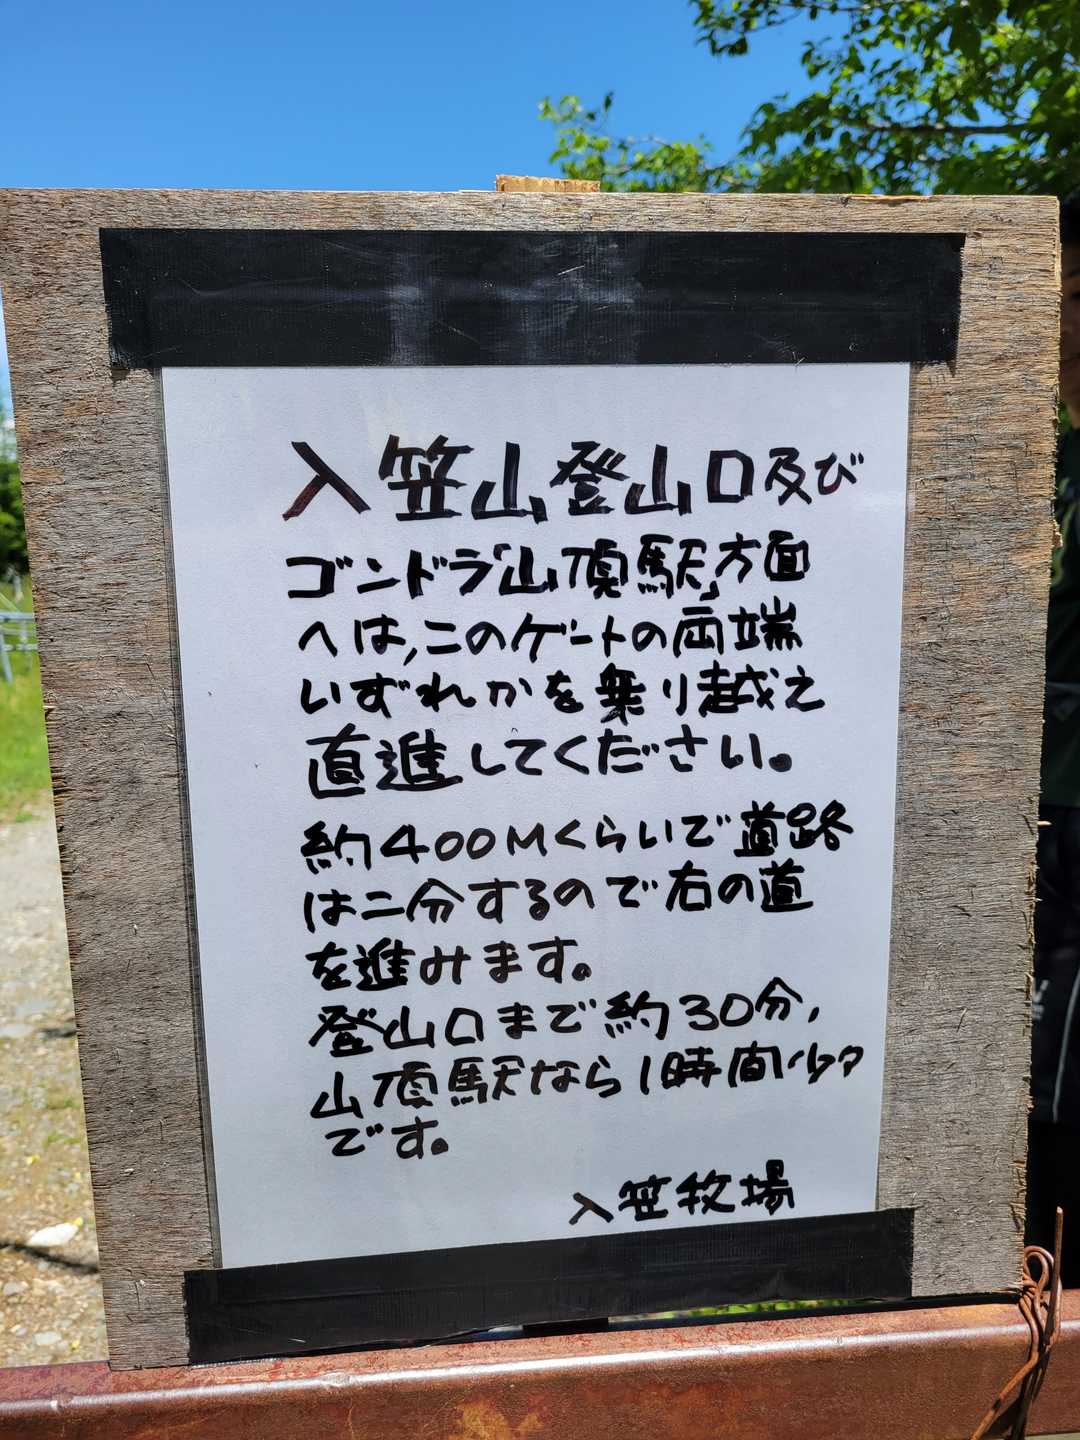 入笠山登山口及び
ゴンドラ「山頂駅」方面
へは,このゲートの両端
いずれかを乗り越え
直進してください。
約400Mくらいで道路
は二分するので右の道
を進みます。
登山口まで約30分,
山頂駅なら1時間少々
です。
入笠牧場